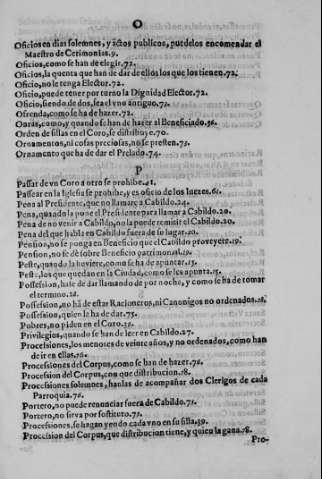 O
Oficios en dias solemnes, y actos publicos, puedelos encomendar el
Maestro de Cerimonias.9.
Oficios, como se han de elegir.72.
Oficios, la quenta que han de dar de ellos los que los tienen.72.
Oficio, no le tenga Elector.72.
Oficio, puede tener por turno la Dignidad Elector.72.
Oficio, siendo de dos, sea el vno antiguo.73.
Ofrenda, como se ha de hazer.72.
Onras, como, y quando se han de hazer al Beneficiado.56.
Orden de sillas en el Coro, se distribuye.70.
Ornamentos, ni cosas preciosas, no se presten.73.
Ornamento que ha de dar el Prelado.74.
P
Passar de vn Coro a otro se prohibe.41.
Passear en la Iglesia se prohibe, y es oficio de los Iuezes.61.
Pena al Presidente, que no llamare a Cabildo.24.
Pena, quando la pone el Presidente para llamar a Cabildo.20.
Pena de no venir a Cabildo, no la puede remitir el Cabildo.20.
Pena del que habla en Cabildo fuera de su lugar.20.
Pension, no se ponga en Beneficio que el Cabildo proveyere.19.
Pension, no se dè sobre Beneficio patrimonial.19.
Peste, quando la huviere, como se ha de apuntar.15.
Peste, los que quedan en la Ciudad, como se les apunta.15.
Possession, hase de dar llamando de por noche, y como se ha de tomar
el termino.18.
Possession, no hà de estar Racioneros, ni Canonigos no ordenados.18.
Possession, quien le ha de dar.75.
Pobres, no piden en el Coro.35.
Privilegios, quando se han de leer en Cabildo.27.
Procesiones, los menores de veinte años, y no ordenados, como han
de ir en ellas.76.
Procesiones del Corpus, como se han de hazer.76.
Procesion del Corpus, con que distribucion.28.
Procesiones solemnes, hanlas de acompañar dos Clerigos de cada
Parroquia.76.
Portero, no puede renunciar fuera de Cabildo.75.
Portero, no sirva por sostituto.75.
Procesiones, se hagan yendo cada vno en su silla.39.
Procesion del Corpus, que distribucion tiene, y quien la gana.28.
Pro-